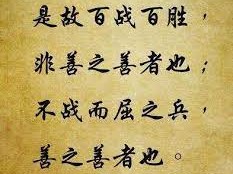 是故百战百胜，
非善之善者也；
不战而屈之兵，
善之善者也。